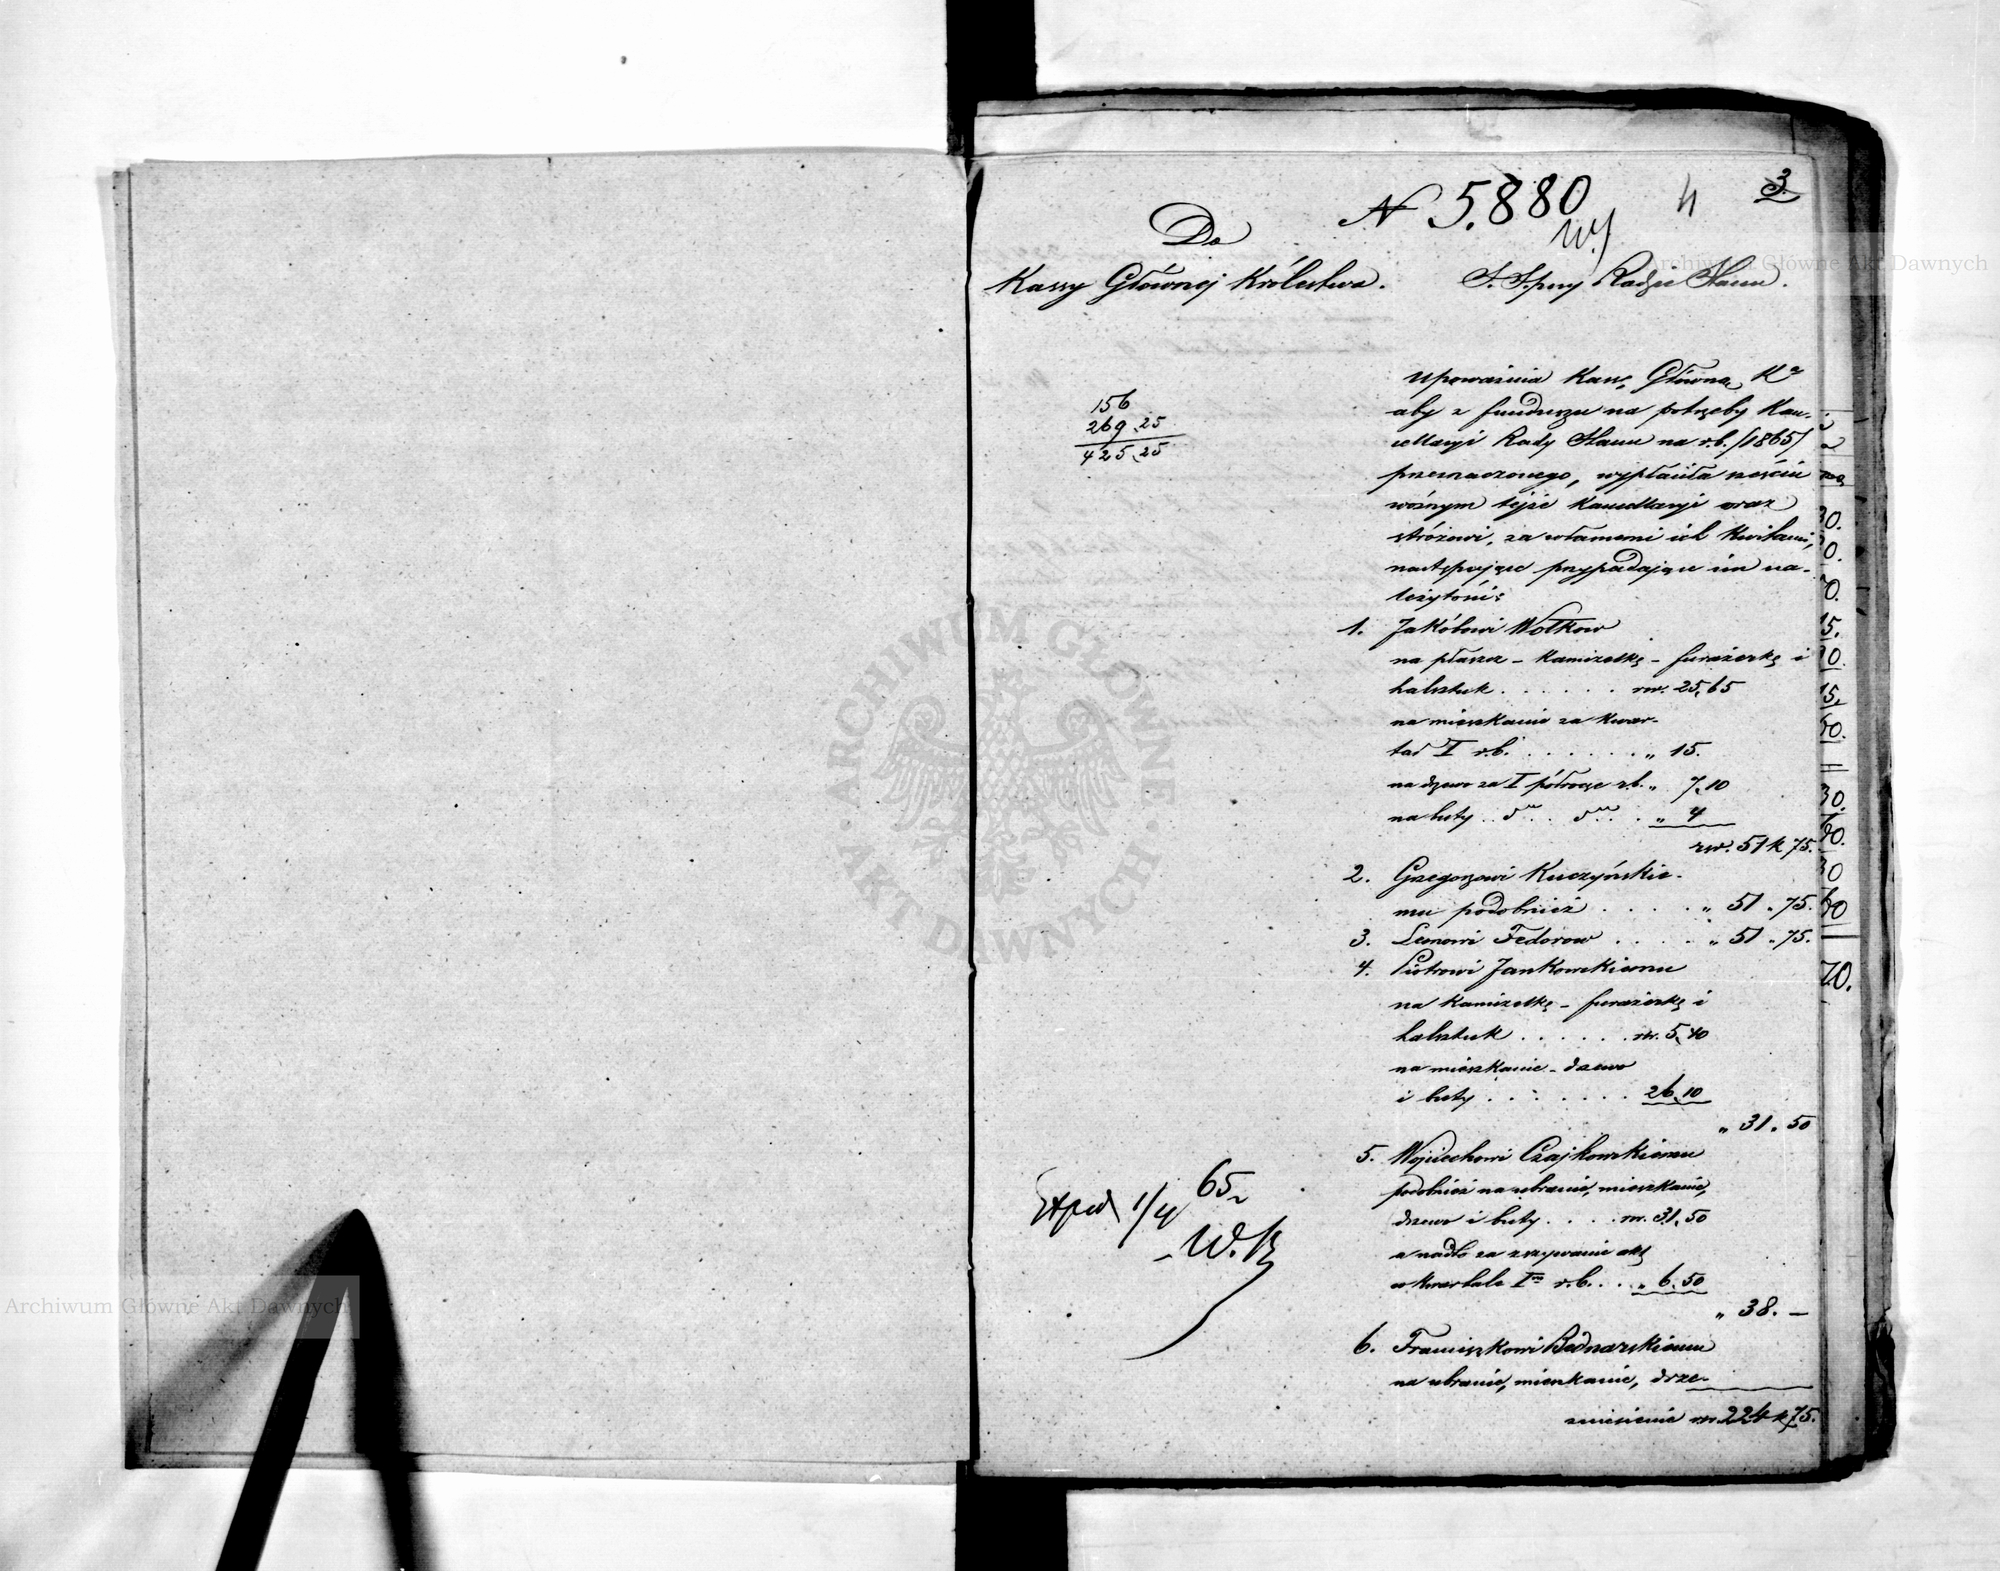 N 5.880
4
3.
Do
Kassy Głównej Królestwa.
S. S. przy Radzie Stanu.
156
269.25
425.25
Upoważnia Kassę Główną Ka
aby z funduszu na potrzeby Kan-
cellaryi Rady Stanu na r.b. /1865/
przeznaczonego, wypłaciła sześciu
woźnym tejże Kancellaryi oraz
stróżowi, za własnemi ich Kwitami,
następujące przypadające im na-
leżytości:
1. Jakóbowi Wołkow
na płaszcz - Kamizelkę - furażerkę i
halsztuk . . . . . . rsr. 25,65
na mieszkanie za kwar-
tał I r.b. . . . . . . „ 15.
na drzewo za I półrocze r.b. „ 7.10
na buty . . . . . „ 4
rsr. 51 k 75.
2. Grzegorzowi Kuczyńskie-
mu podobnież . . . . „ 51 „ 75.
3. Leonowi Fedorow . . . . „ 51 „ 75.
4. Piotrowi Jankowskiemu
na Kamizelkę - furażerkę i
halsztuk . . . . . . rsr. 5,40
na mieszkanie - drzewo
i buty . . . . . . . 26.10
„ 31 „ 50
5. Wojciechowi Czajkowskiemu
podobnież na ubranie, mieszkanie,
drzewo i buty . . . . rsr. 31,50
a nadto za zszywanie akt
w kwartale I r.b. . . „ 6.50
„ 38. —
6. Franciszkowi Bednarskiemu
na ubranie, mieszkanie, drze-
zniesienie rsr 224 k 75.
Exped 1/4 65
W. K.
ARCHIWUM GŁÓWNE
AKT DAWNYCH
Archiwum Główne Akt Dawnych
Archiwum Główne Akt Dawnych